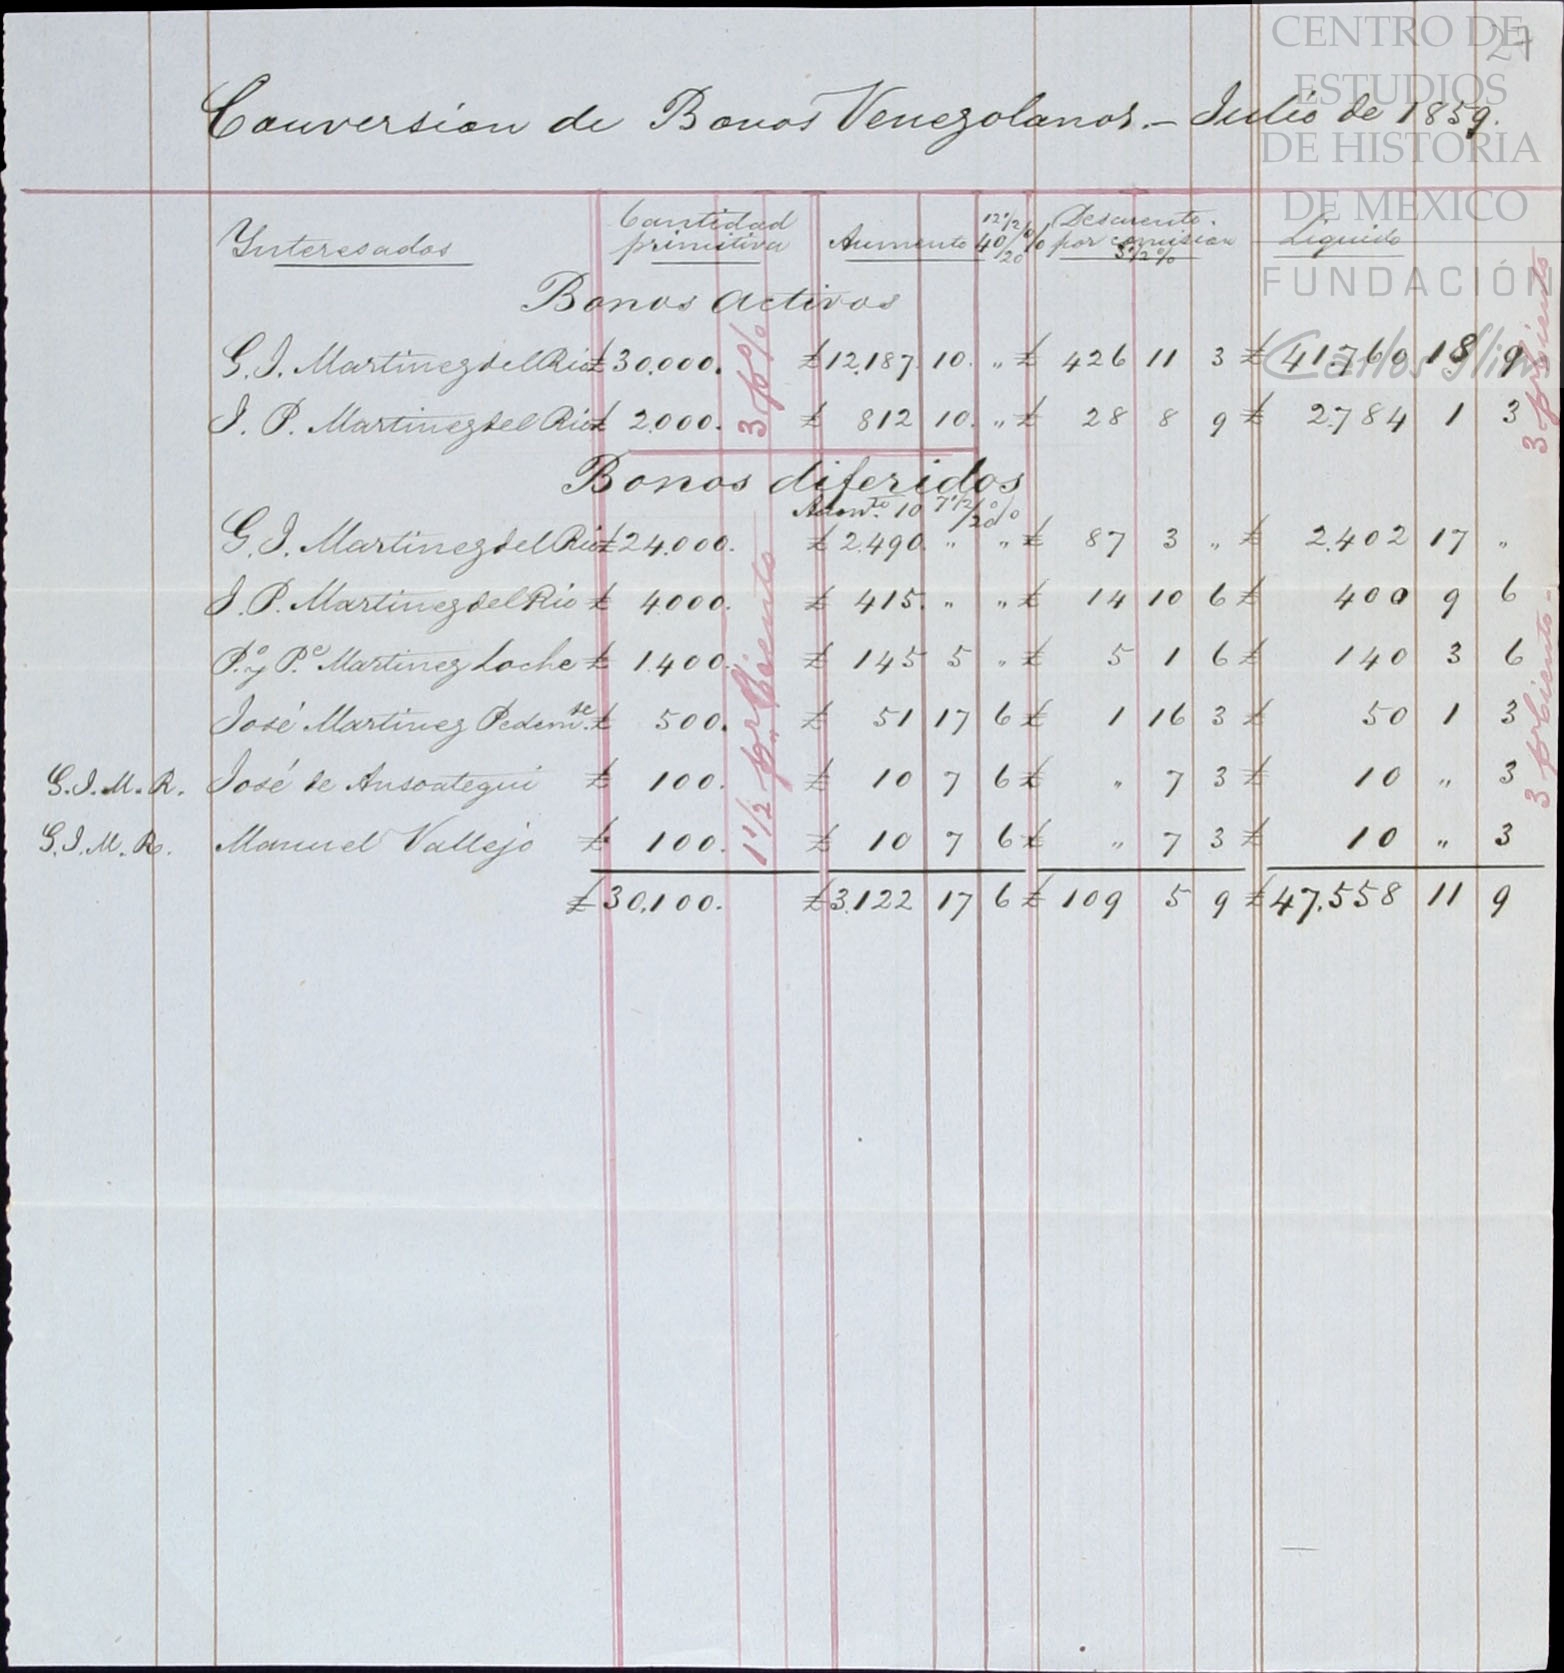 27
CENTRO DE
ESTUDIOS
DE HISTORIA
DE MEXICO
FUNDACIÓN
Carlos Slim
Conversion de Bonos Venezolanos.– Julio de 1859.
Interesados Cantidad primitiva Aumento 40 12½/20 % Descuento por comision 3½ % Liquido
Bonos activos
G. J. Martinez del Rio £ 30.000. £ 12.187. 10. „ £ 426 11 3 £ 41.760 18 9
J. P. Martinez del Rio £ 2.000. £ 812 10. „ £ 28 8 9 £ 2.784 1 3
3 p% 
3 p% Ciento
Bonos diferidos
Aumto. 10 7½/20 %
G. J. Martinez del Rio £ 24.000. £ 2.490. „ „ £ 87 3 „ £ 2.402 17 „
J. P. Martinez del Rio £ 4000. £ 415. „ „ £ 14 10 6 £ 400 9 6
Po. y Pe. Martinez Loche £ 1.400. £ 145 5 „ £ 5 1 6 £ 140 3 6
José Martinez Pedemte. £ 500. £ 51 17 6 £ 1 16 3 £ 50 1 3
G. J. M. R. José de Ansoategui £ 100. £ 10 7 6 £ „ 7 3 £ 10 „ 3
G. J. M. R. Manuel Vallejo £ 100. £ 10 7 6 £ „ 7 3 £ 10 „ 3
1½ pr Ciento
3 pr Ciento
£ 30,100. £ 3.122 17 6 £ 109 5 9 £ 47.558 11 9